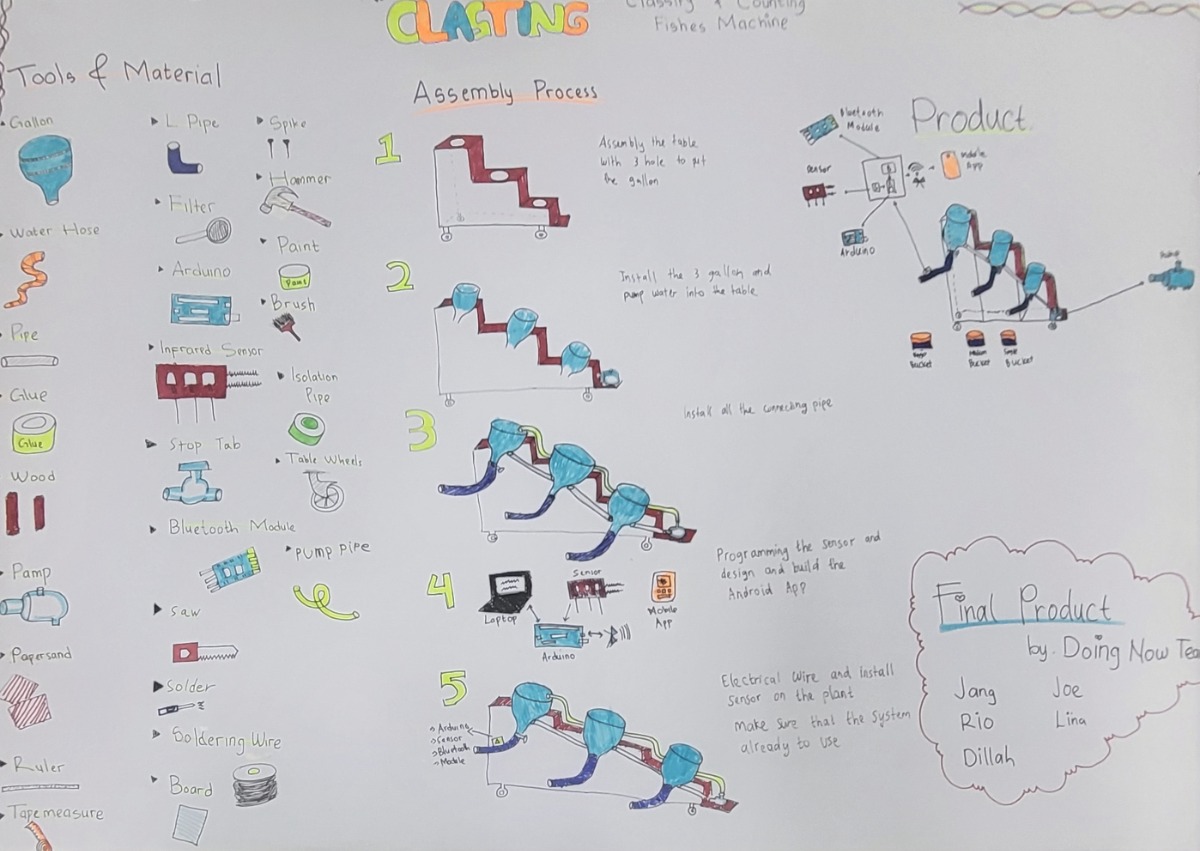 CLASTING
Classify & Counting
Fishes Machine
Tools & Material
Gallon
Water Hose
Pipe
Glue
Glue
Wood
Pamp
Papersand
Ruler
Tapemeasure
L Pipe
Filter
Arduino
Infrared Sensor
Stop Tab
Bluetooth Module
Saw
Solder
Soldering Wire
Board
Spike
Hammer
Paint
Brush
Isolation
Pipe
Table Wheels
Pump Pipe
Assembly Process
1
Assembly the table
with 3 hole to put
the gallon
2
Install the 3 gallon and
pump water into the table
3
Install all the connecting pipe
4
Laptop
Sensor
Mobile
App
Arduino
Programming the sensor and
design and build the
Android App
5
Arduino
Sensor
Bluetooth
Module
Electrical Wire and install
sensor on the plant
make sure that the system
already to use
Product
Bluetooth
Module
Sensor
Mobile
App
Arduino
Bucket
Bucket
Bucket
Final Product
by. Doing Now Tea
Jang
Joe
Rio
Lina
Dillah